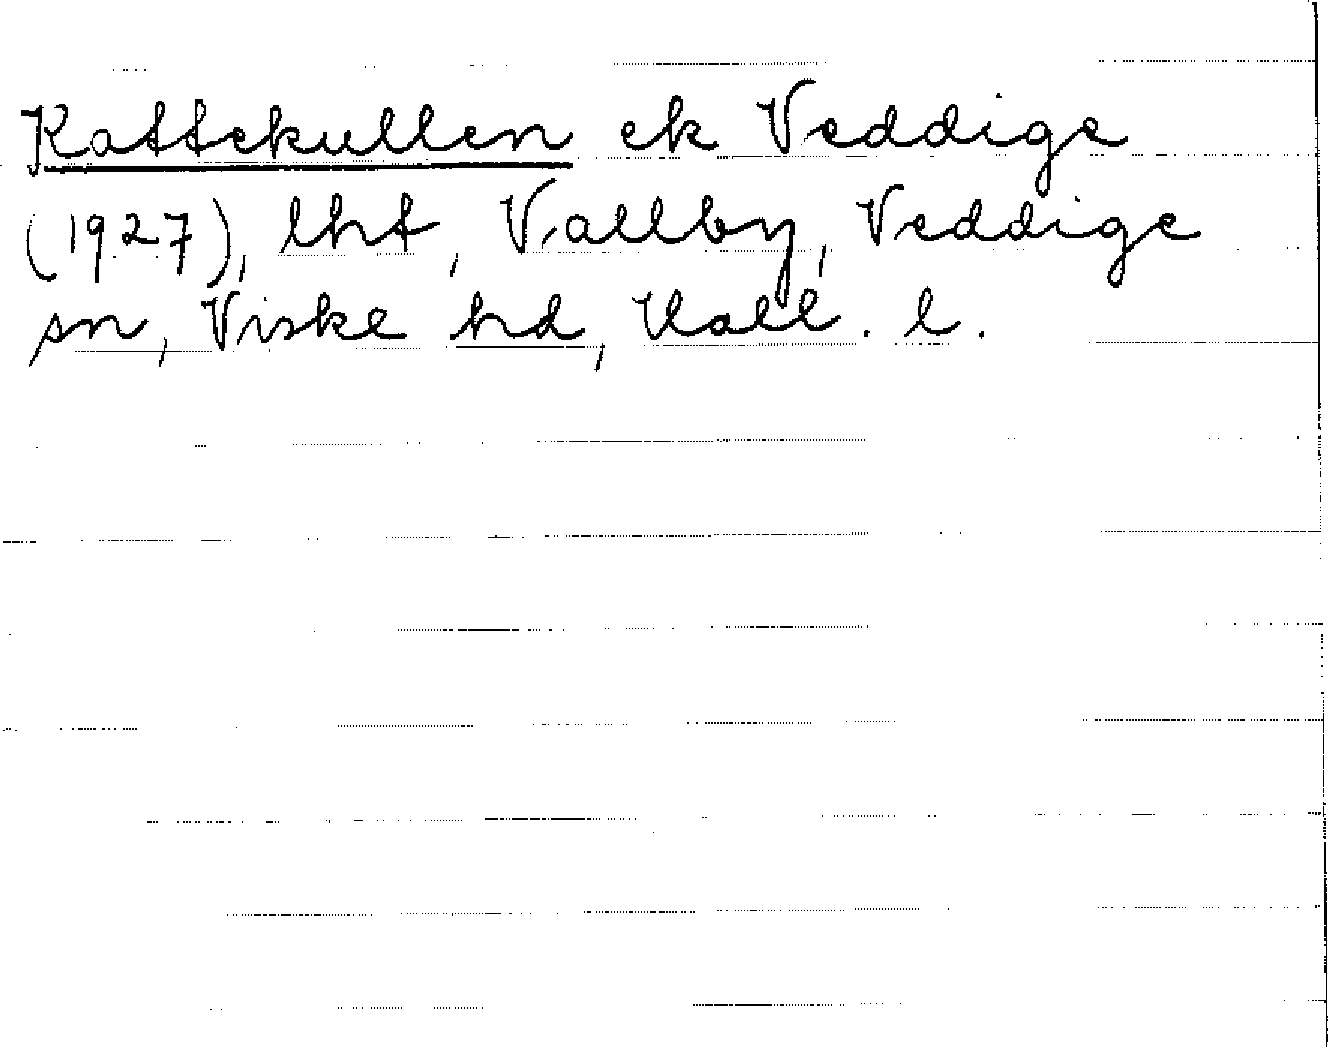 Kattekullen ek Veddige
(1927), lht, Vallby, Veddige
sn, Viske hd, Hall. l.